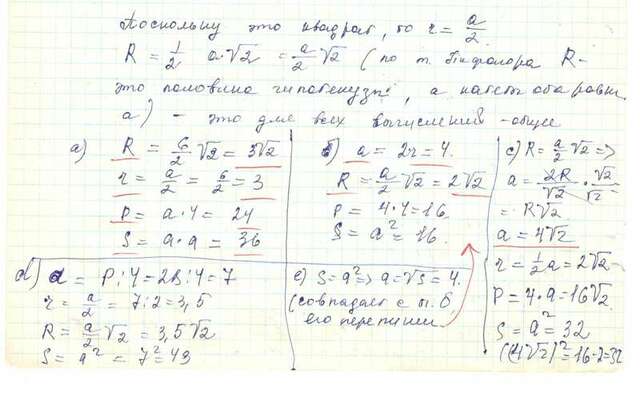 Поскольку это квадрат, то r = a/2
R = 1/2 a·√2 = a/2 √2 (по т. Пифагора R –
это половина гипотенузы, а катеты оба равны
a) – это для всех вычислений – общее
a) R = 6/2 √2 = 3√2
r = a/2 = 6/2 = 3
P = a·4 = 24
S = a·a = 36
б) a = 2r = 4.
R = a/2 √2 = 2√2
P = 4·4 = 16.
S = a² = 16.
c) R = a/2 √2 =>
a = 2R/√2 · √2/√2
= R√2
a = 4√2
r = 1/2 a = 2√2
P = 4·a = 16√2
S = a² = 32
(4√2)² = 16·2 = 32
d) a = P:4 = 28:4 = 7
r = a/2 = 7:2 = 3,5
R = a/2 √2 = 3,5√2
S = a² = 7² = 49
e) S = a² => a = √S = 4.
(совпадает с п. б
его перепиши